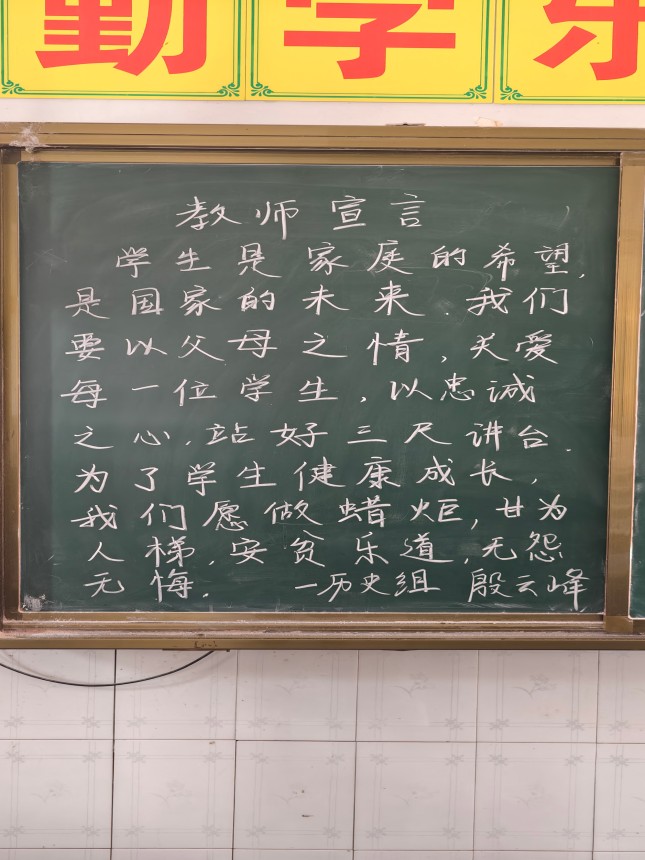 勤学乐
教师宣言
学生是家庭的希望,
是国家的未来.我们
要以父母之情,关爱
每一位学生,以忠诚
之心,站好三尺讲台.
为了学生健康成长,
我们愿做蜡炬,甘为
人梯,安贫乐道,无怨
无悔. 一历史组 殷云峰